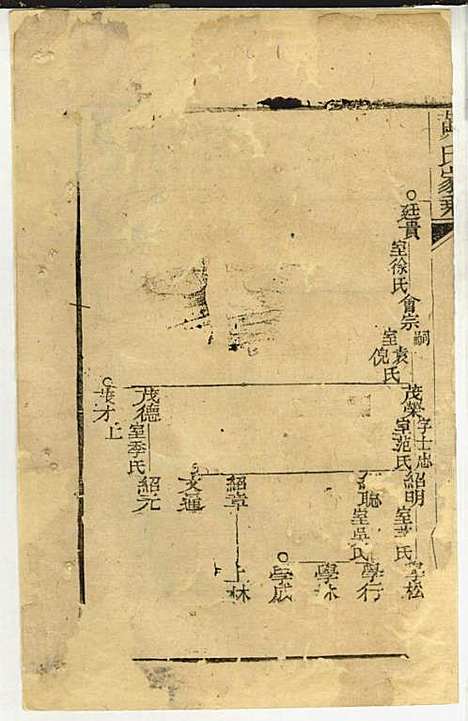 氏家乘
廷貴
室徐氏
會宗
嗣
室袁氏
倪
茂榮
字士忠
室范氏
紹明
室 氏
學松
聰
室吳氏
學行
學
學成
紹章
上林
文運
茂德
室季氏
紹元
才
上